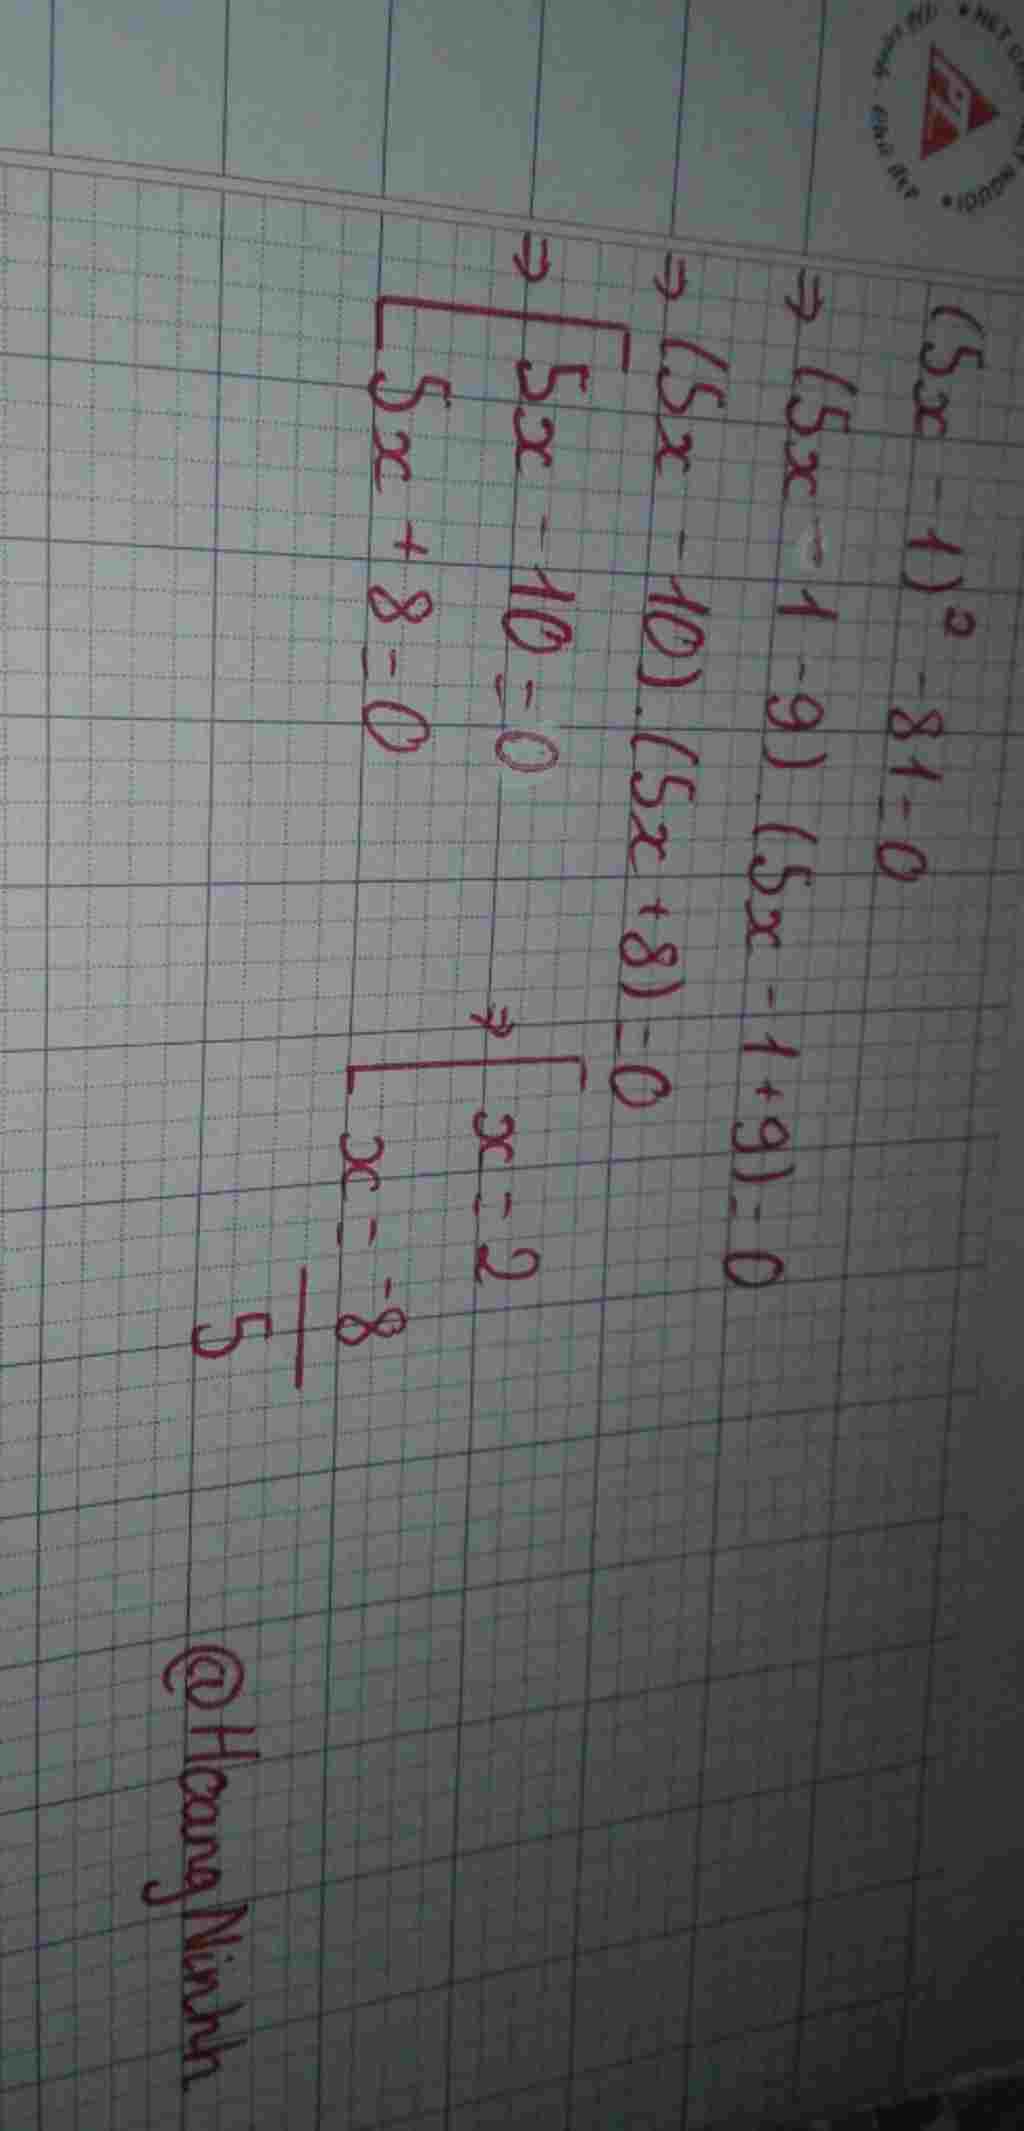 (5x - 1)² - 81 = 0
⇒ (5x - 1 - 9) . (5x - 1 + 9) = 0
⇒ (5x - 10) . (5x + 8) = 0
⇒ [ 5x - 10 = 0 ⇒ [ x = 2
5x + 8 = 0 x = -8/5
@Hoang Ninhh